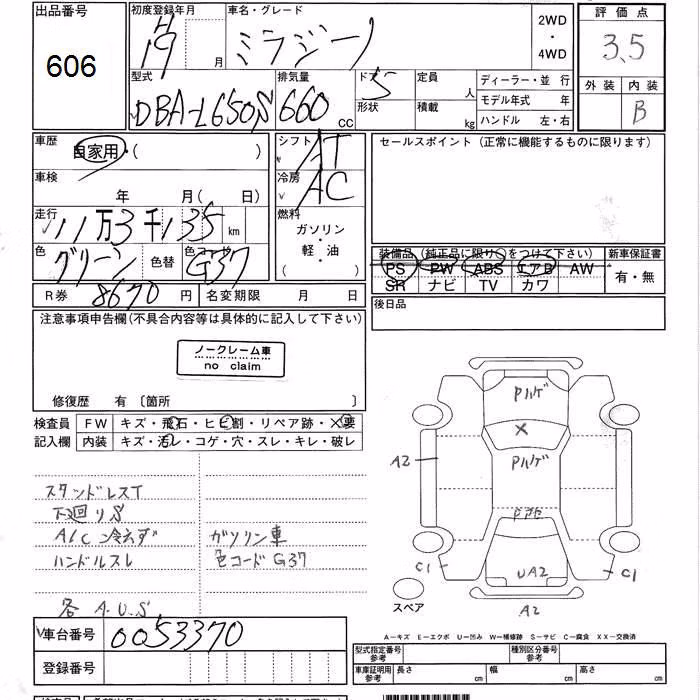 出品番号
606
初度登録年月
H19 月
車名・グレード
ミラジーノ
2WD
・
4WD
評価点
3.5
外装 内装
B
型式
DBA-L650S
排気量
660 CC
ドア 5
形状
定員 人
積載 kg
ディーラー・並行
モデル年式 年
ハンドル 左・右
車歴
自家用・( )
シフト
AT
セールスポイント (正常に機能するものに限ります)
車検
年 月( 日)
冷房
AC
走行
11万3千135 km
燃料
ガソリン
・
軽・油
( )
色
グリーン
色替
色コード
G37
装備品 (純正品に限り○をつけて下さい)
PS PW ABS エアB AW
SR ナビ TV カワ
新車保証書
有・無
R券 8670 円
名変期限 月 日
後日品
注意事項申告欄(不具合内容等は具体的に記入して下さい)
ノークレーム車
no claim
修復歴 有〔箇所 〕
検査員
記入欄
FW キズ・飛石・ヒビ割・リペア跡・X要
内装 キズ・汚レ・コゲ・穴・スレ・キレ・破レ
下廻りS
A/C冷えず
ハンドルスレ
各 A.U.S
ガソリン車
色コードG37
Pハゲ
X
A2
Pハゲ
UA2
C1
C1
A2
スペア
A-キズ E-エクボ U-凹み W-補修跡 S-サビ C-腐食 XX-交換済
車台番号
0053370
登録番号
型式指定番号
参考
種別区分番号
参考
車庫証明用
参考
長さ cm
幅 cm
高さ cm